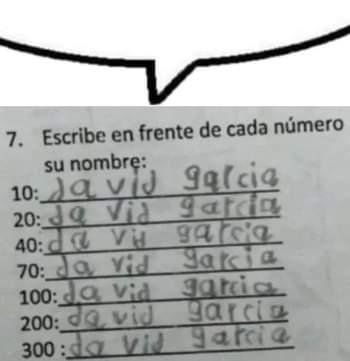 7. Escribe en frente de cada número
su nombre:
10: david garcia
20: david garcia
40: david garcia
70: david garcia
100: david garcia
200: david garcia
300 : david garcia